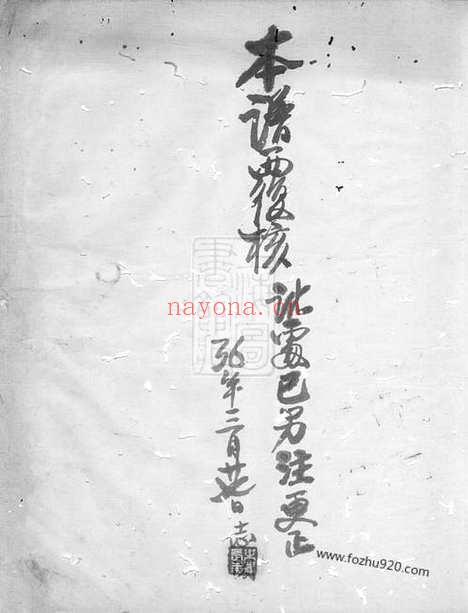 本譜覆核訛處已另注更正
56年三月廿七日志
nayona.cn
www.fozhu920.com